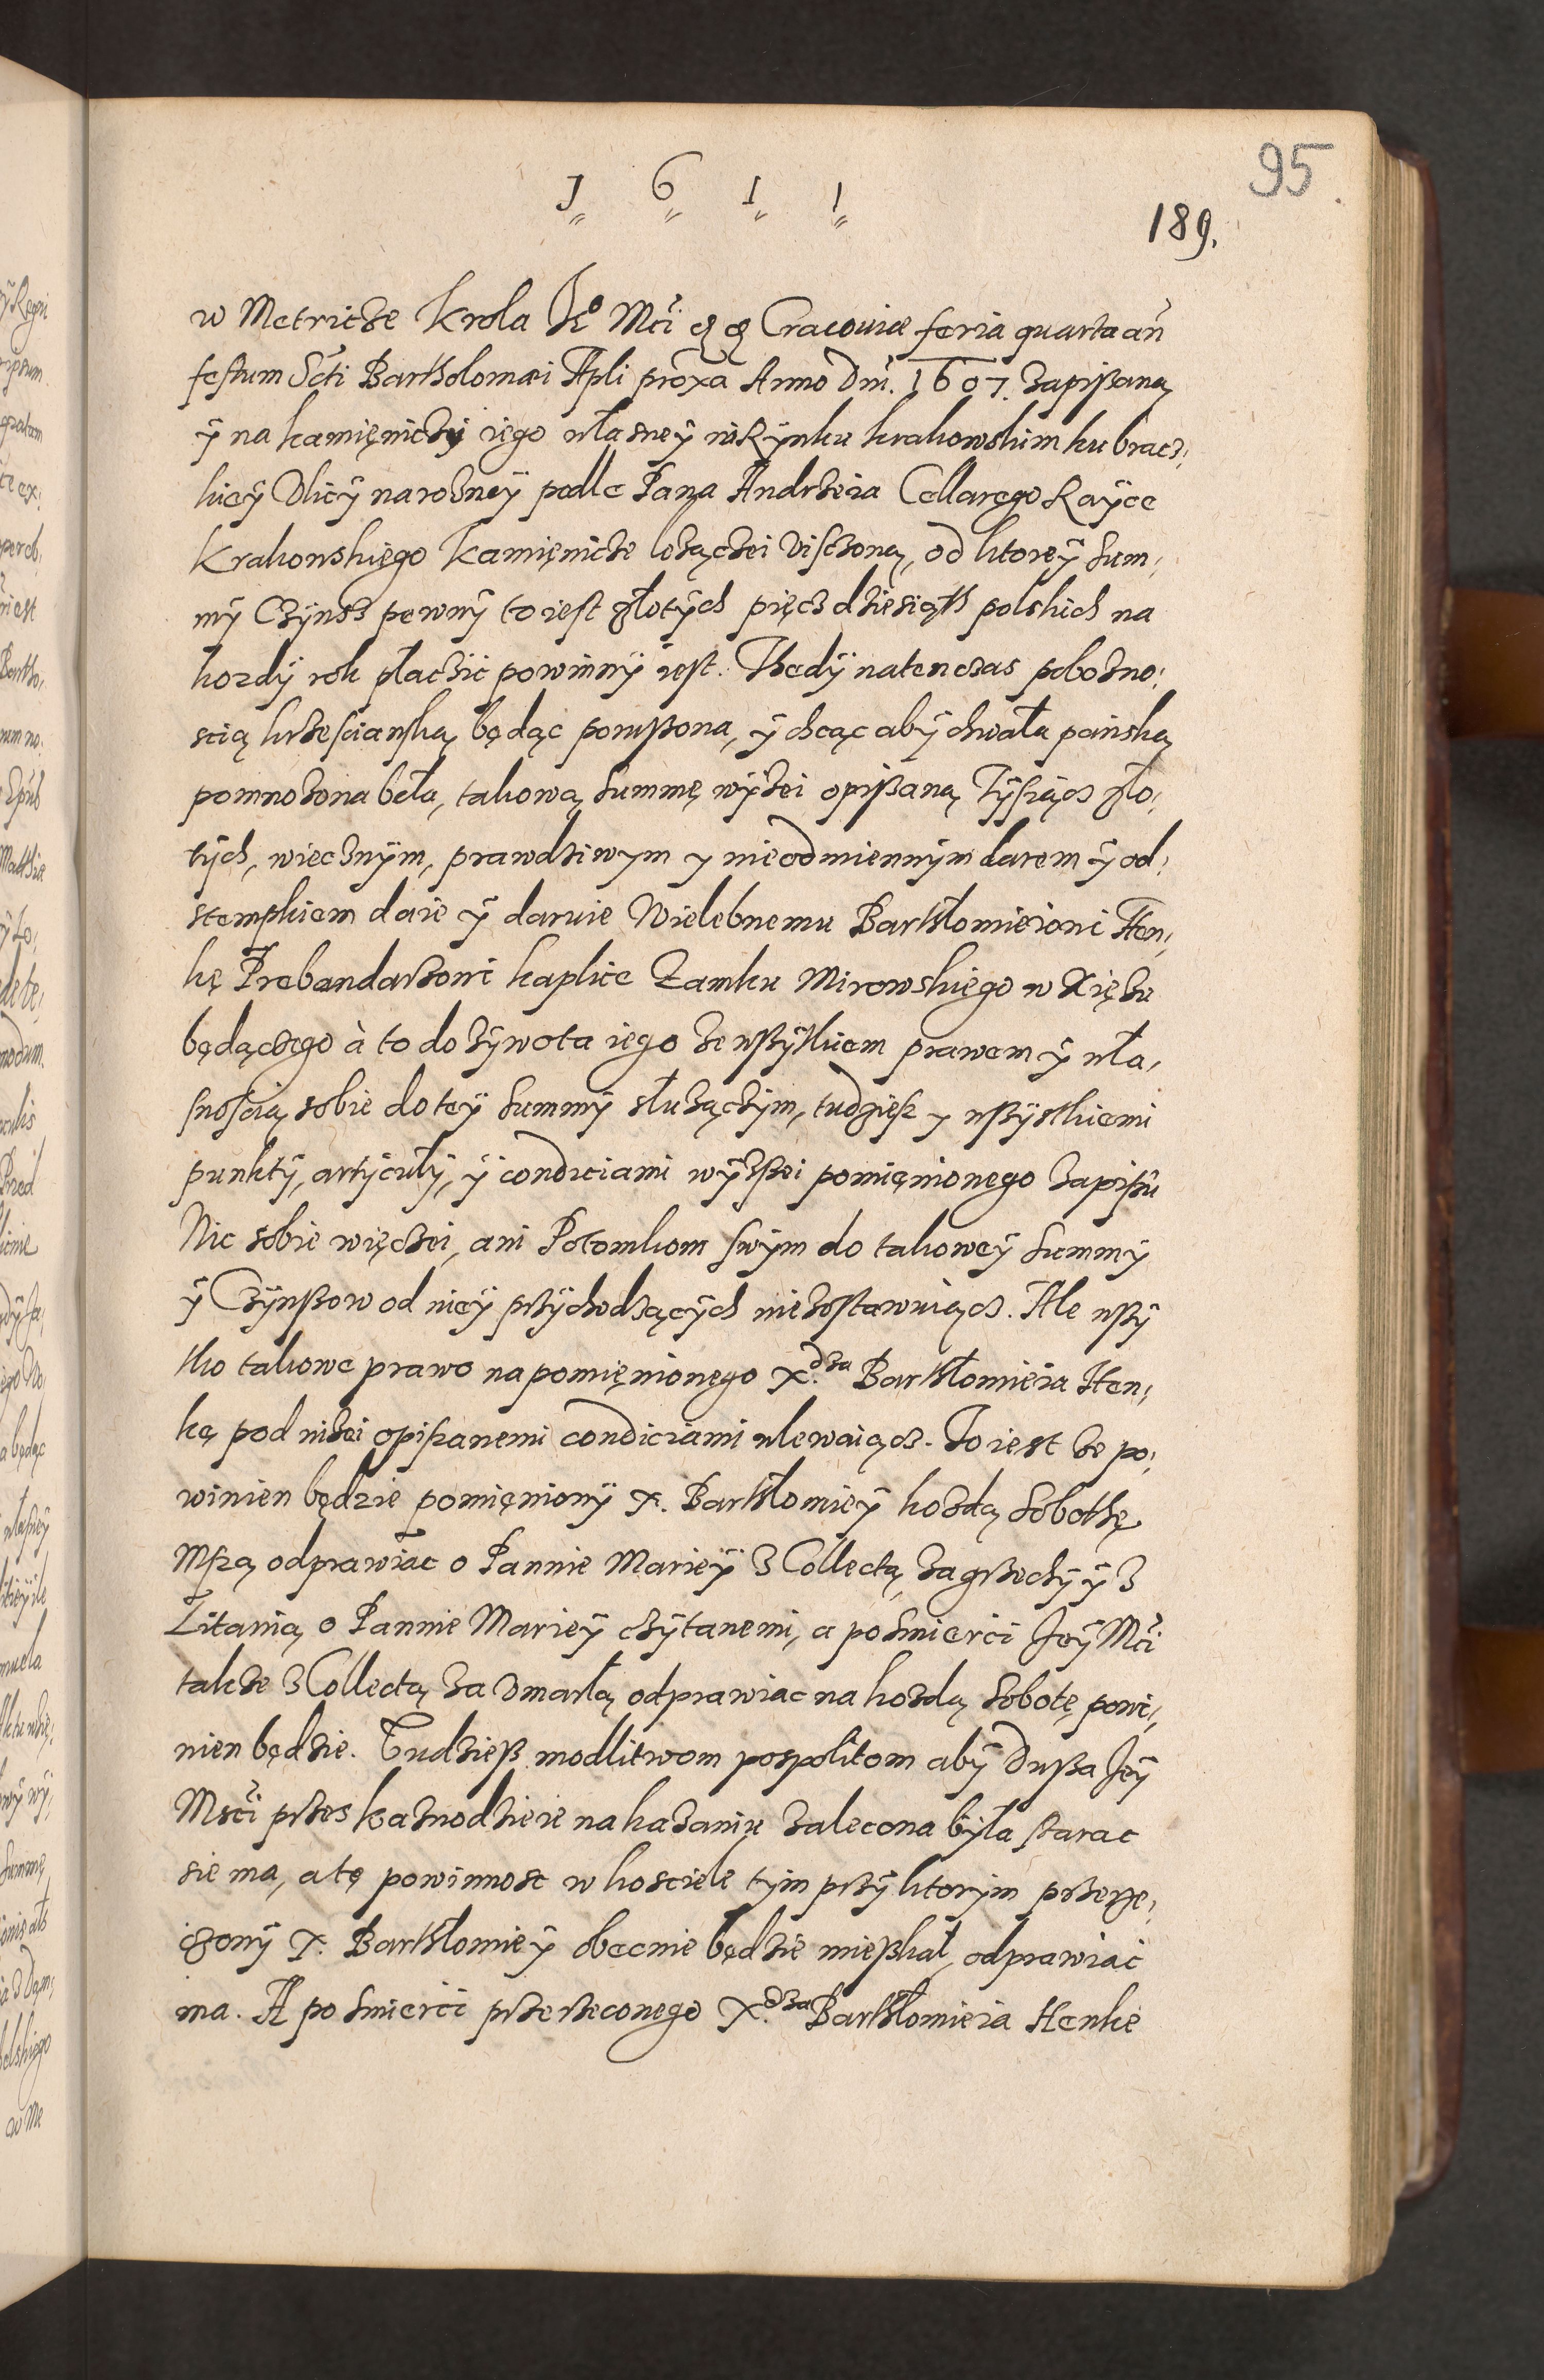 95.
1 6 1 1
189.
w Metricze Krola Je⁰ Mći Cracouiæ feria quarta añ
festum Sčti Bartholomæi Apli proxa Anno Dni. 1607. zapißaną
ÿ na kamięniczÿ iego własneÿ w Rÿnku krakowskim ku bracz:
kieÿ Ulicÿ narozneÿ podle Pana Andrzeia Cellarego Raÿce
Krakowskięgo Kamięnicze lezączei Uisczoną, od ktoreÿ Sum:
mÿ Czÿnsz pewnÿ to iest złotÿch pięczdziesiąth polskich na
kozdÿ rok płaczić powinnÿ iest. Thedÿ natenczas pobozno:
scią krzesciańską będąc porußona, ÿ chcąc abÿ chwała pańska
pomnozona beła, takową Summę wÿzei opißaną Tÿsiącz zło:
tÿch, wiecznÿm, prawdziwym y nieodmiennÿm darem ÿ od:
stempkiem daie ÿ daruie Wielebnemu Barthłomieiowi Hen:
kę Prebendarzowi kaplice Zamku Mirowskiego w Xięzu
będączego à to do zÿwota iego ze wßÿtkiem prawem ÿ wła:
snoscią sobie do teÿ Summÿ słuzączÿm, tudziesz y wßÿstkiemi
punktÿ, artÿcułÿ, ÿ condiciami wÿzßei pomięnionego zapisu
Nic sobie więczei, ani Potomkom swÿm do takoweÿ Summÿ
ÿ Czÿnßow od nieÿ przÿchodzącÿch niezostawuiącz. Ale wßÿ
tko takowe prawo na pomięnionego X.dza Barthłomieia Hen:
kę pod nizei opisanemi condiciami wlewaiącz. To iest ze po:
winien będzie pomięnionÿ X. Barthłomieÿ kozdą Sobothę
Mszą odprawiac o Pannie Marieÿ z Collectą za grzechÿ ÿ z
Litanią o Pannie Marieÿ czÿtanemi, a po Smierci Jeÿ Mći
takze z Collectą za Umarłą odprawiac na kozdą Sobotę powi:
nien będzie. Tudzieß modlitwom pospolitom abÿ Dußa Jeÿ
Mści przes kaznodzieie na kazaniu zalecona bÿła starac
sie ma, a tę powinnosc w kosciele tÿm przÿ ktorÿm przerze:
czonÿ X. Barthłomieÿ obecnie będzie mießkał, odprawiać
ma. A po Smierci przerzeconego X.dza Barthłomieia Henke